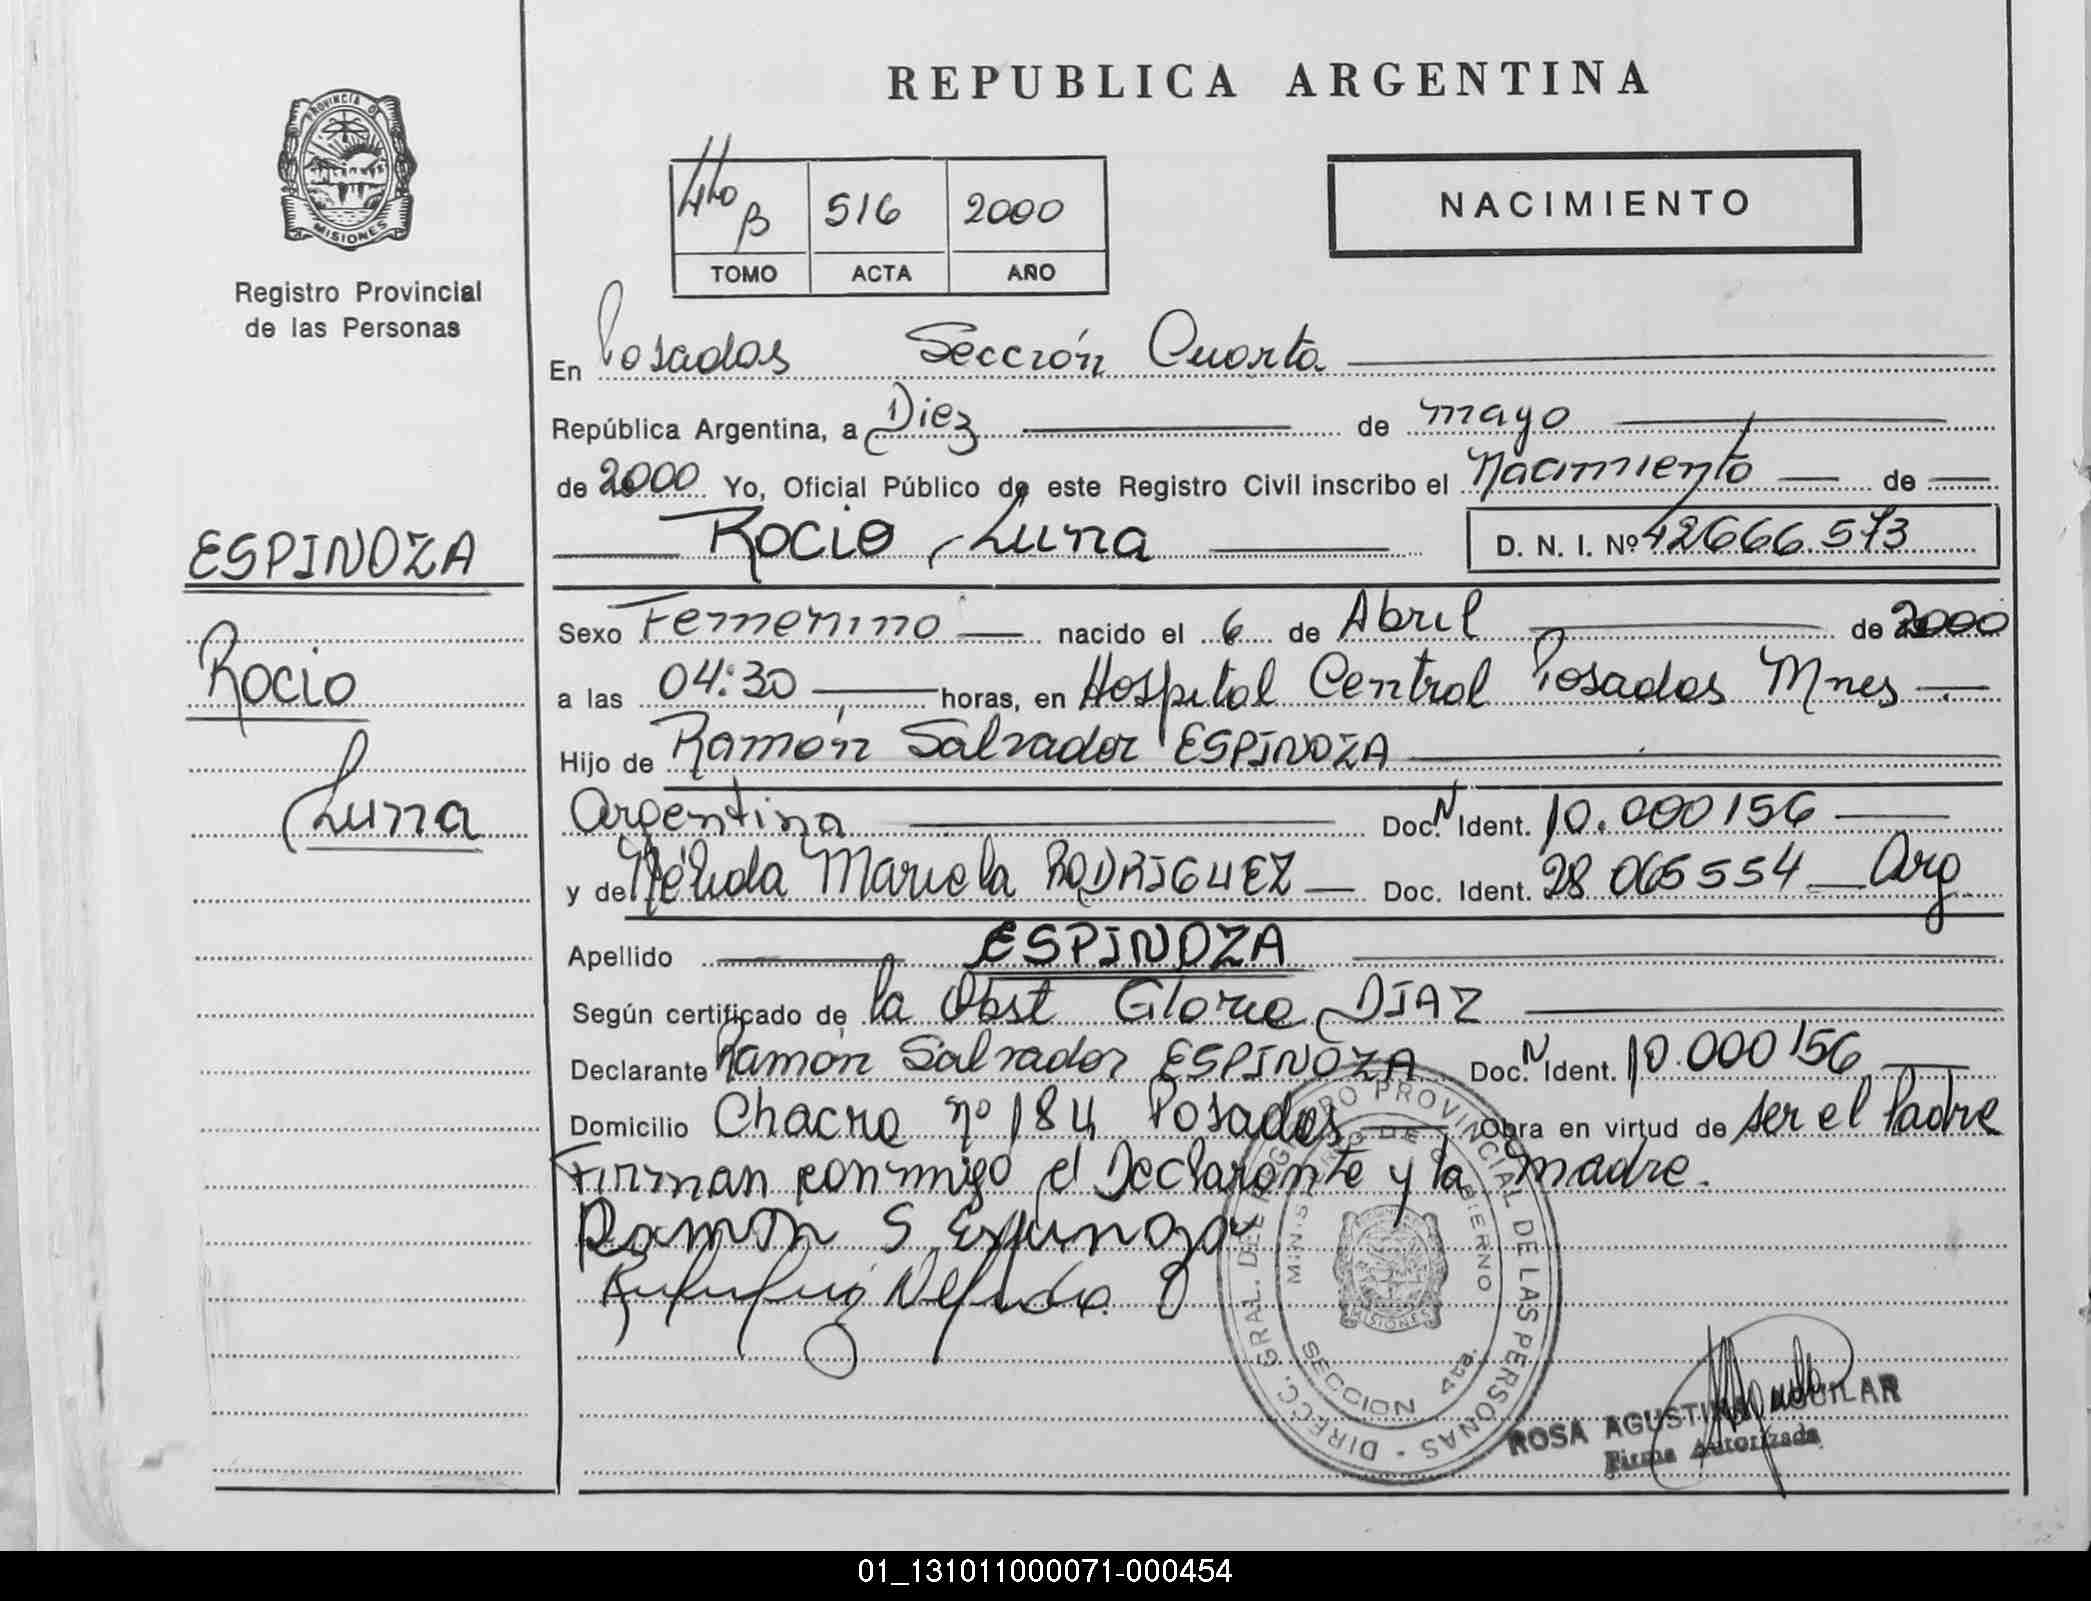 REPUBLICA ARGENTINA
PROVINCIA DE MISIONES
Registro Provincial
de las Personas
4to B 516 2000
TOMO ACTA AÑO
NACIMIENTO
En Posadas Sección Cuarta
República Argentina, a Diez de mayo
de 2000 Yo, Oficial Público de este Registro Civil inscribo el Nacimiento de
Rocio Luna D. N. I. Nº 42666.573
ESPINOZA
Rocio
Luna
Sexo Femenino nacido el 6 de Abril de 2000
a las 04:30 horas, en Hospital Central Posadas Mnes
Hijo de Ramón Salvador ESPINOZA
Argentina Doc. N Ident. 10.000156
y de Nélida Mariela RODRIGUEZ Doc. Ident. 28 065554 Arg
Apellido ESPINOZA
Según certificado de la Obst Gloria DIAZ
Declarante Ramón Salvador ESPINOZA Doc. N Ident. 10.000156
Domicilio Chacra nº 184 Posadas Obra en virtud de ser el Padre
Firman conmigo el Declarante y la madre.
Ramon S Espinoza
DIRECC. GRAL. DE REGISTRO PROVINCIAL DE LAS PERSONAS
MINISTERIO DE GOBIERNO
MISIONES
SECCION 4ta.
ROSA AGUSTINA AGUILAR
Firma Autorizada
01_131011000071-000454